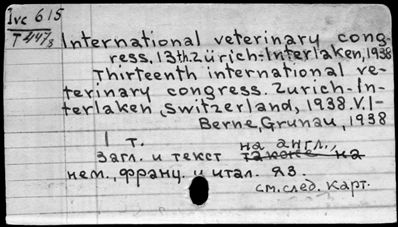 Ivc 615
T447₈
International veterinary cong-
ress. 13th. Zürich-Interlaken, 1938
Thirteenth international ve-
terinary congress. Zurich-In-
terlaken, Switzerland, 1938. V.I-
Berne, Grunau, 1938
1 т.
Загл. и текст на англ.,
также на
нем., франц. и итал. яз.
см.след. карт.